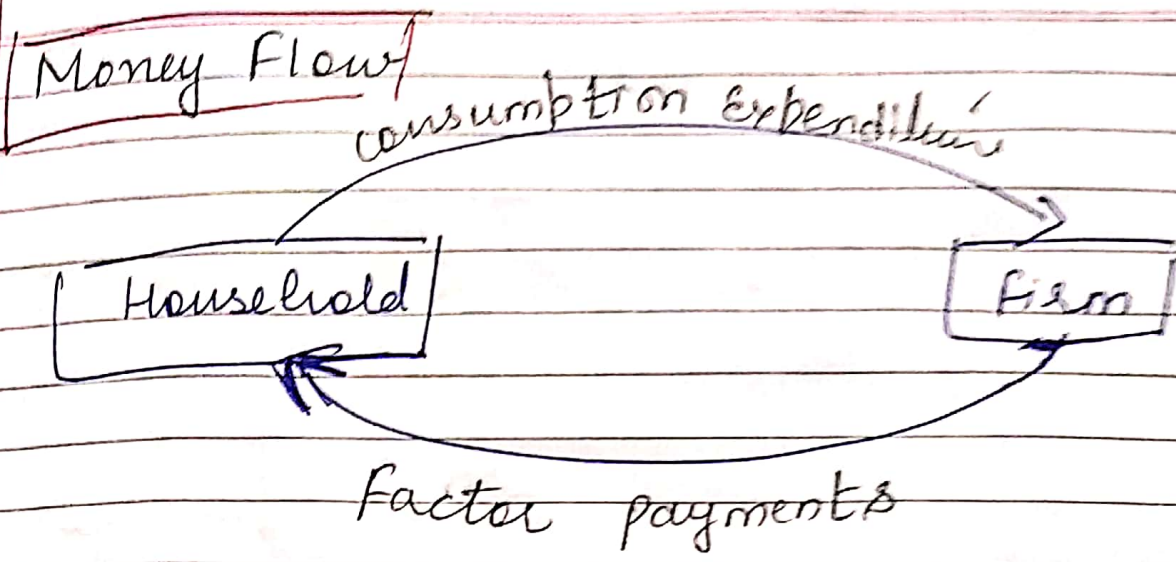 Money Flow
Consumption Expenditure
Household
Firm
Factor payments